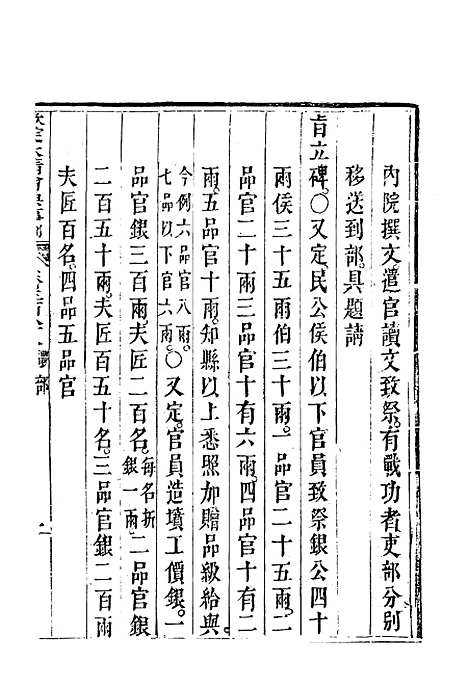 内院撰文遣官讀文致祭。有戰功者吏部分別
移送到部。具題請
旨立碑。〇又定民公侯伯以下官員致祭銀公四十
兩侯三十五兩伯三十兩。一品官二十五兩。二
品官二十兩三品官十有六兩。四品官十有二
兩。五品官十兩。知縣以上悉照加贈品級給與。
今例六品官八兩。
七品以下官六兩。〇又定。官員造墳工價銀。一
品官銀三百兩夫匠二百名。每名折
銀一兩。二品官銀
二百五十兩。夫匠百五十名。三品官銀二百兩
夫匠百名。四品五品官